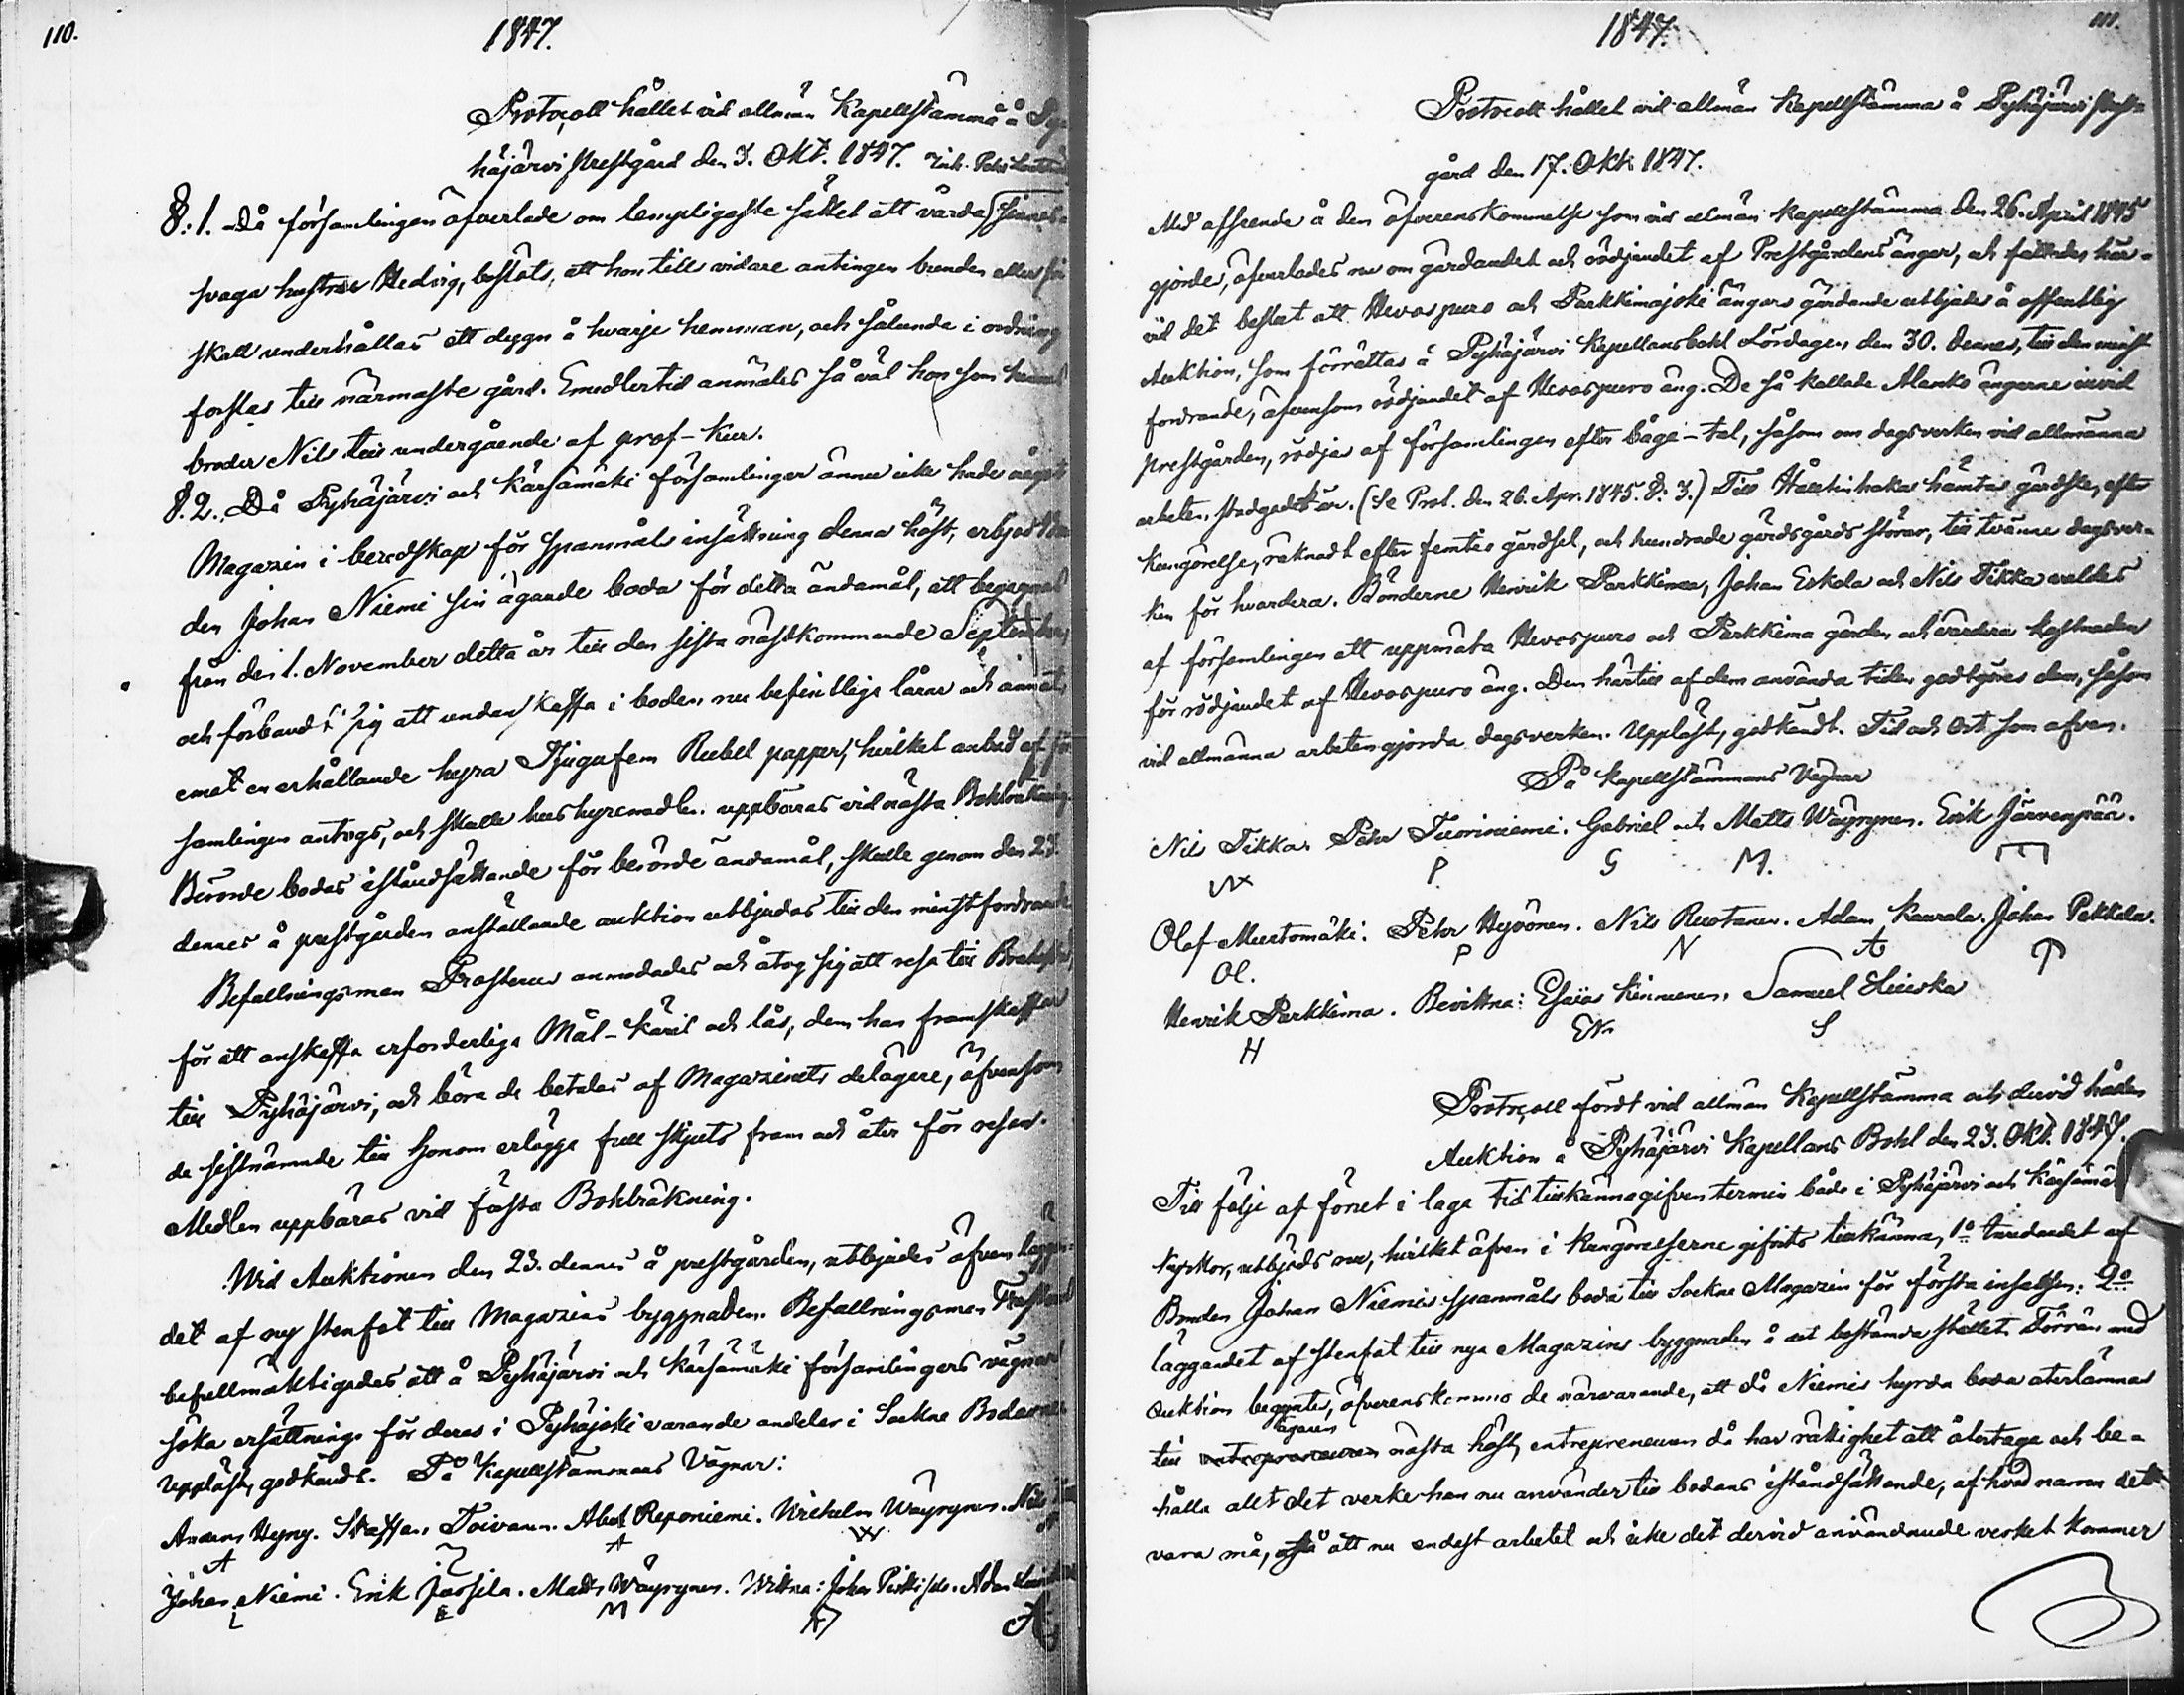 110.
1847.
Protocoll hållet vid allmän Kapellstämma å Py-
häjärvi prestgård den 3. Okt. 1847.
§:1. Då församlingen öfverlade om lempligaste sättet att vårda sinnes-
svaga hustru Hedvig, beslöts, att hon tills vidare antingen bunden eller fri
skall underhållas ett dygn å hvarje hemman, och sålunde i ordning
forslas till närmaste gård. Emedlertid anmäles så väl hon som hennes
broder Nils till undergående af prof-kur.
§.2. Då Pyhäjärvi och Kärsämäki församlingar ännu icke hade något
Magazin i beredskap för spanmåls insättning denna höst, erbjöd Bon-
den Johan Niemi sin ägande boda för detta ändamål, att begagnas
från den 1. November detta år till den sista nästkommande September,
och förband sig att undanskaffa i boden nu befintliga lårar och annat,
emot en erhållande hyra Tjugufem Rubel papper, hvilket anbud af för-
samlingen antogs, och skulle hushyremedlen uppbäras vid nästa Bokbräkning.
Berörde bodas iståndsättande för berörde ändamål, skulle genom den 23.
dennes å prestgården anställande auktion utbjudas till den minstfordrande.
Befallningsman Frosterus anmodades och åtog sig att resa till Brahestad,
för att anskaffa erforderliga Mål-käril och lås, dem han framskaffar
till Pyhäjärvi, och böra de betalas af Magazinets delägare, äfvensom
de sistnämnde till honom erlägga full skjuts fram och åter för resan.
Medlen uppbäras vid första Bohlräkning.
Wid Auktionen den 23. dennes å prestgården, utbjudes äfven läggan-
det af ny stenfot till Magazins byggnaden. Befallningsman Frosterus
befullmäktigades att å Pyhäjärvi och Kärsämäki församlingars vägnar
söka ersättning för deras i Pyhäjoki varande andelar i Sockne Bodarne.
Uppläst, godkändt. På Kapellstämmans Vägnar:
Anders Hyny. Staffan Toivanen. Abel Reponiemi. Wilhelm Wäyrynen. Nils
A A W
Johan Niemi. Erik Jussila. Matts Wäyrynen. Wittna: Johan Pirttisalo. Adam
E M A
111.
1847.
Protocoll hållet vid allmän Kapellstämma å Pyhäjärvi prest-
gård den 17. Okt. 1847.
Med afseende å den öfverenskommelse som vid allmän kapellstämma den 26. April 1845
gjordes, öfverlades nu om gärdandet och rödjandet af Prestgårdens ängar, och fattades här-
vid det beslut att Hevospuro och Parkkimajoki ängars gärdande utbjudes å offentlig
Auktion, som förrättas å Pyhäjärvi Kapellansbohl Lördagen den 30. dennes, till den minst
fordrande, äfvensom rödjandet af Hevospuro äng. De så kallade Alanko ängarne invid
prestgården, rödjas af församlingen efter båge-tal, såsom om dagsverken vid allmänna
arbeten stadgadt är. (Se Prot. den 26. Apr. 1845 §: 3.) Till Hättinhaka hämtas gärdsle, efter
kungörelse, räknadt efter femtio gärdsel, och hundrade gärdsgårds störar, till tvänne dagsver-
ken för hvardera. Bönderne Henrik Parkkima, Johan Eskola och Nils Tikka valdes
af församlingen att uppmäta Hevospuro och Parkkima gärden och värdera kostnaden
för rödjandet af Hevospuro äng. Den härtill af dem använda tiden godtgöres dem, såsom
vid allmänna arbeten gjorda dagsverken. Uppläst, godkändt. Tid och Ort som ofvan.
På Kapellstämmans Vägnar
Nils Tikka. Pehr Tuoriniemi. Gabriel och Matts Wäyrynen. Erik Järvenpää.
P G M.
Olof Murtomäki. Pehr Hyvönen. Nils Ruotanen. Adam Kaurala. Johan Pekkala.
Ol. P N A
Henrik Parkkima. Bevittna: Esaias Kinnunen, Samuel
H S
Protocoll fördt vid allmän Kapellstämma och dervid hållen
Auktion å Pyhäjärvi Kapellans Bohl den 23. Okt. 1847.
Till följe af förut i laga tid tillkännagifven termin både i Pyhäjärvi och Kärsämäki
kyrkor, utbjöds nu, hvilket äfven i kungörelserne gifvits tillkänna, 1o inredandet af
Bonden Johan Niemis spanmåls boda till Sockne Magazin för första insatsen: 2o
läggandet af stenfot till nya Magazins byggnaden å det bestämda stället. Förrän med
Auktion begyntes, öfverenskommo de närvarande, att då Niemis hyrda boda aterlämnas
ägaren
till entrepreneuren nästa höst, entrepreneuren då har rättighet att återtaga och be-
hålla allt det verke han nu använder till bodans iståndsättande, af hvad namn det
vara må, så att nu endast arbetet och icke det dervid användande verket kommer